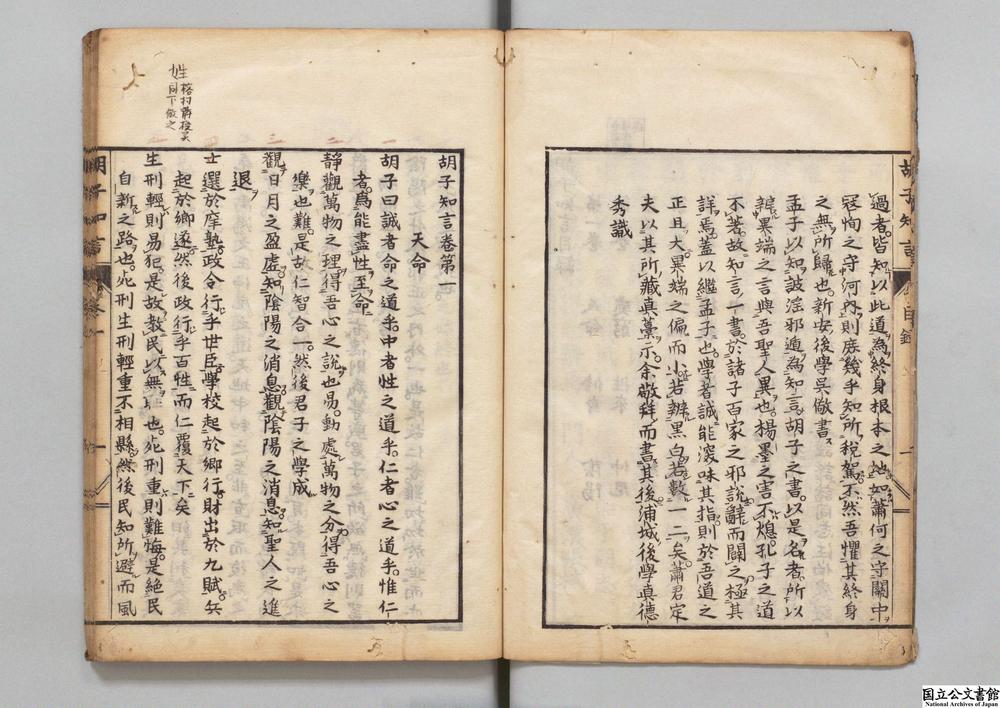 過者皆知以此道為終身根本之地如蕭何之守關中
冦恂之守河內則庶幾乎知所稅駕不然吾懼其終身
之無所歸也新安後學吳儆書
孟子以知詖淫邪遁為知言胡子之書以是名者所以
辨異端之言與吾聖人異也楊墨之害不熄孔子之道
不著故知言一書於諸子百家之邪說辭而闢之極其
詳焉蓋以繼孟子也學者誠能深味其指則於吾道之
正且大異端之偏而小若辨黑白若數一二矣蕭君定
夫以其所藏真藁示余敬拜而書其後浦城後學真德
秀識
胡子知言卷第一
天命
胡子曰誠者命之道乎中者性之道乎仁者心之道乎惟仁
者為能盡性至命
靜觀萬物之理得吾心之說也易動處萬物之分得吾心之
樂也難是故仁智合一然後君子之學成
觀日月之盈虛知陰陽之消息觀陰陽之消息知聖人之進
退
士選於庠塾政令行乎世臣學校起於鄉行財出於九賦兵
起於鄉遂然後政行乎百姓而仁覆天下矣
生刑輕則易犯是故教民以無也死刑重則難悔是絕民
自新之路也死刑生刑輕重不相縣然後民知所避而風
姓
同下倣之
胡子知言
一
胡子知言
目錄
一
国立公文書館
National Archives of Japan